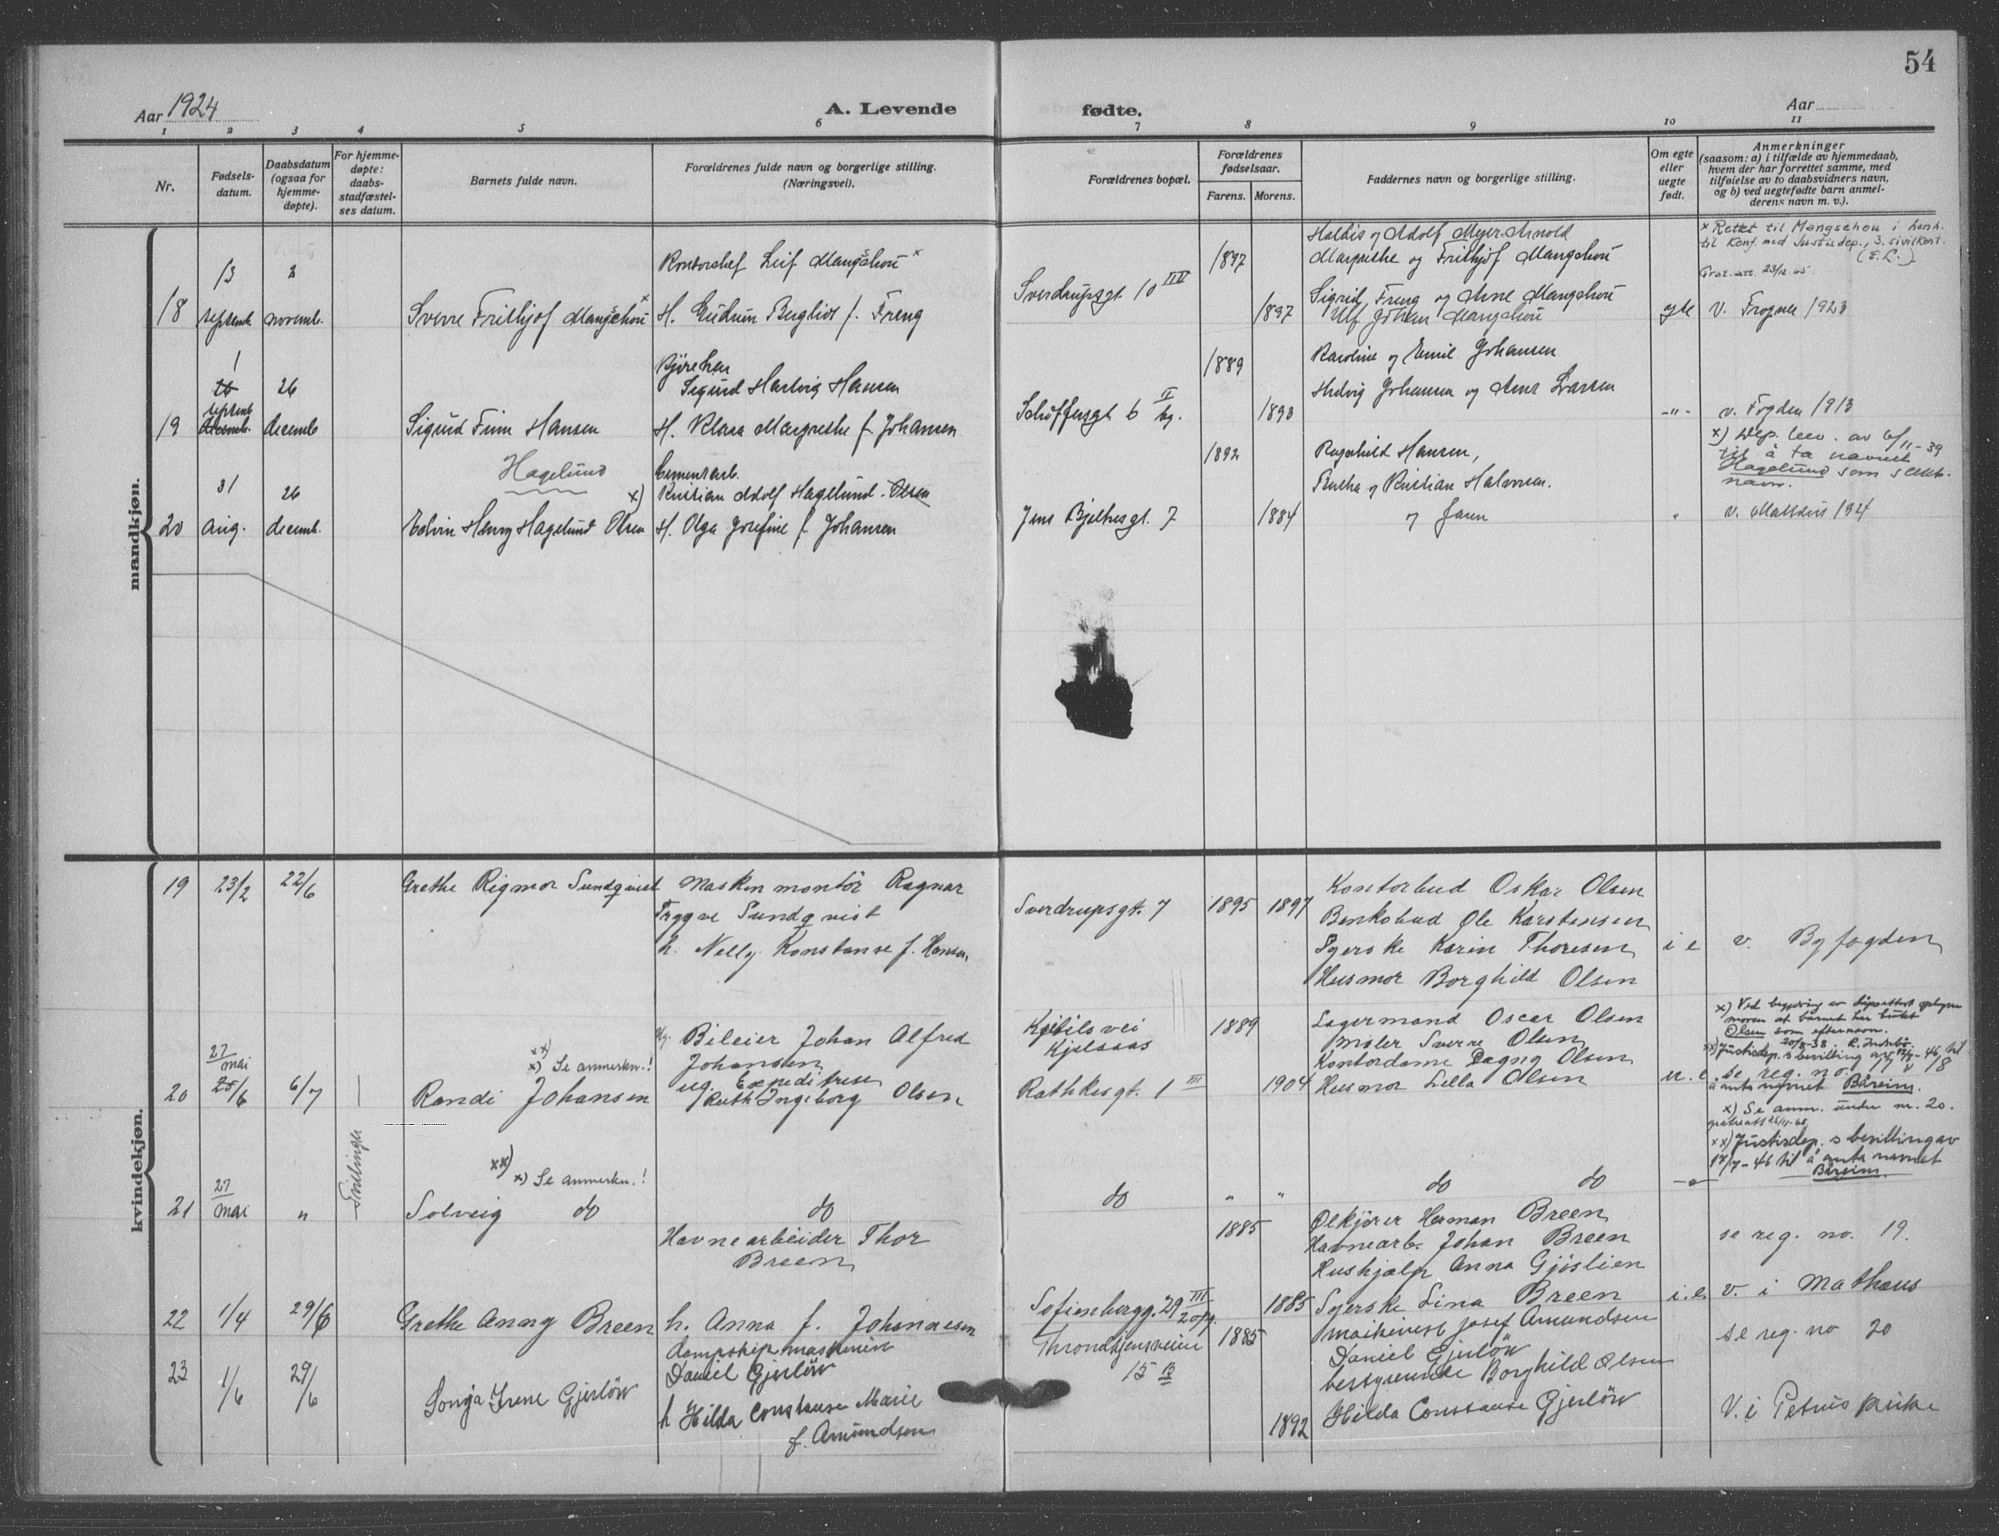 54
Aar 1924
A. Levende
fødte.
Aar
1 2 3 4 5 6 7 8 9 10 11
Nr.
Fødsels-
datum.
Daabsdatum
(ogsaa for
hjemme-
døpte).
For hjemme-
døpte:
daabs-
stadfæstel-
ses datum.
Barnets fulde navn.
Forældrenes fulde navn og borgerlige stilling.
(Næringsvei).
Forældrenes bopæl.
Forældrenes
fødselsaar.
Farens. Morens.
Faddernes navn og borgerlige stilling.
Om egte
eller
uegte
født.
Anmerkninger
(saasom: a) i tilfælde av hjemmedaab,
hvem der har forrettet samme, med
tilføielse av to daabsvidners navn,
og b) ved uegtefødte barn anmel-
derens navn m. v.).
mandkjøn.
18
13
septemb.
2
novemb.
Sverre Frithjof Mangschou x
Kontorchef Leif Mangschou x
H. Gudrun Bergliot f. Freng
Sverdrupsgt 10 III
1897
1897
Haldis og Adolf Meyer-Arnold
Margrethe og Frithjof Mangschou
Sigrid Freng og Arne Mangschou
Ulf Johan Mangschou
egte
x Rettet til Mangschou i henh.
til Konf. med Justisdep., 3. sivilkont.
(E.L.)
V. Frogner 1923
19
1
septemb
decemb.
26
decemb
Sigurd Finn Hansen
Kjørekar
Sigurd Hartvig Hansen
H. Klara Margrethe f. Johansen
Schøffersgt 6 II
1889
1893
Karoline og Emil Johansen
Hedvig Johansen og Arne Larsen
-"-
v. Fogden 1913
20
31
aug.
26
decemb.
Hagelund
Edvin Henry Hagelund Olsen
Cementarb.
x) Kristian Adolf Hagelund Olsen
H. Olga Josefine f. Johansen
Jens Bjelkesgt. 7
1892
1884
Ragnhild Hansen,
Bertha og Kristian Halvorsen.
"
x) Dep. bev. av 6/11-39
til å ta navnet
Hagelund som slekts-
navn.
kvindekjøn.
19
23/2
22/6
Grethe Rigmor Sundqvist
Maskinmontør Ragnar
Trygve Sundqvist
h. Nelly Konstanse f. Hansen
Sverdrupsgt. 7
1895 1897
Kontorbud Oskar Olsen
Bankobud Ole Karstensen
Syerske Karin Thoresen
Husmor Borghild Olsen
i e
v. Byfogden
20
27
mai
25/6
6/7
Tvillinger
xx)
x) Se anmerkn.!
Randi Johansen
Bileier Johan Alfred
Johansen
ug. Expeditrise
Ruth Ingeborg Olsen
Kjelsaas
Rathkesgt. 1 III
1889
1904
Lagermand Oscar Olsen
Maler Sverre Olsen
Kontordame Dagny Olsen
Husmor Lilla Olsen
u. e.
moren at barnet har
Olsen som efternavn.
20/8-38
xx) Justisdep.s bevilling av 17/7-46 til
se reg. no. 17 8
å anta navnet Båreim.
21
27
mai
"
xx)
x) Se anmerkn.!
Solveig do
do
do
" "
do do
-"-
x) Se anm. under nr. 20.
xx) Justisdep.s bevilling av
17/7-46 til å anta navnet
Båreim
se reg. no. 19.
22
1/4
29/6
Grethe Anny Breen
Havnearbeider Thor
Breen
h. Anna f. Johannesen
Sofienbergg. 29 III
1885
1885
Ølkjører Herman Breen
Havnearb. Johan Breen
Hushjælp Anna Gjøslien
Syerske Lina Breen
i. e.
v. i Mathæus
se reg. no 20
23
1/6
29/6
Sonja Irene Gjerløw
Daniel Gjerløw
h Hilda Constanse Marie
f. Amundsen
Throndhjemsveien
15 B
1885
1892
Maskinist Josef Amundsen
Daniel Gjerløw
bestyrerinde Borghild Olsen
Hilda Constanse Gjerløw
V. i Petrus kirke